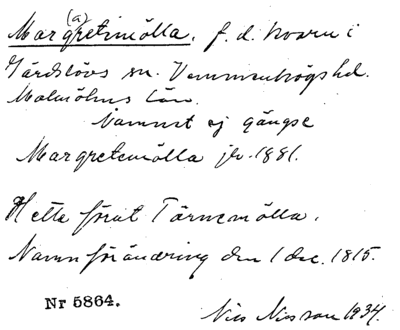 Mar(a)gretemölla. f. d. kvarn i
Gärdslövs sn. Vemmenhögs hd.
Malmöhus län.
Namnet ej gängse
Margretemölla jb. 1881.
Hette förut Tärnemölla.
Namnförändring den 1 dec. 1815.
Nr 5864.
Nils Nilsson 1934.